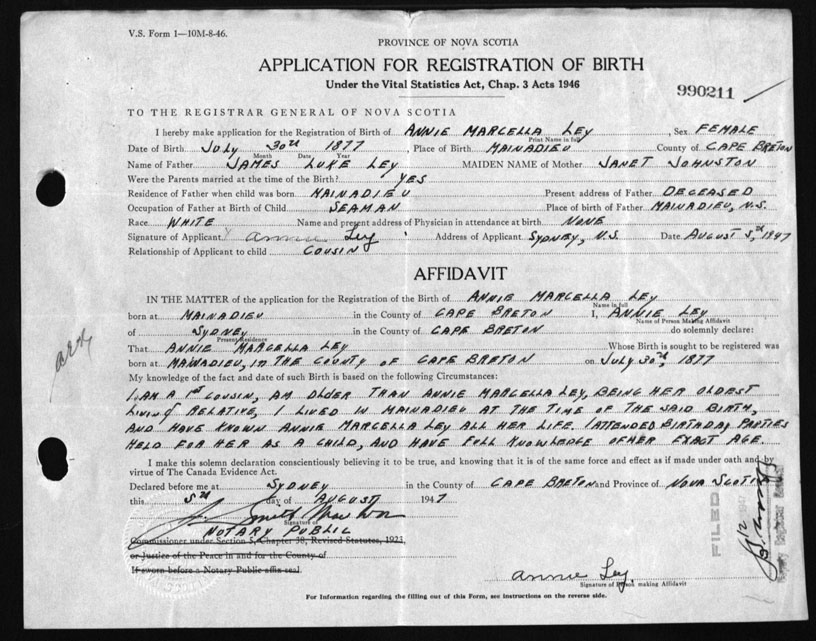 V.S. Form 1—10M-8-46.
PROVINCE OF NOVA SCOTIA
APPLICATION FOR REGISTRATION OF BIRTH
Under the Vital Statistics Act, Chap. 3 Acts 1946
990211
TO THE REGISTRAR GENERAL OF NOVA SCOTIA
I hereby make application for the Registration of Birth of ANNIE MARCELLA LEY, Sex FEMALE
Print Name in full
Date of Birth JULY 30th 1877, Place of Birth MAINADIEU County of CAPE BRETON
Month Date Year
Name of Father JAMES LUKE LEY MAIDEN NAME of Mother JANET JOHNSTON
Were the Parents married at the time of the Birth? YES
Residence of Father when child was born MAINADIEU Present address of Father DECEASED
Occupation of Father at Birth of Child SEAMAN Place of birth of Father MAINADIEU, N.S.
Race WHITE Name and present address of Physician in attendance at birth NONE
Signature of Applicant Annie Ley Address of Applicant SYDNEY, N.S. Date AUGUST 5th, 1947
Relationship of Applicant to child COUSIN
AFFIDAVIT
IN THE MATTER of the application for the Registration of the Birth of ANNIE MARCELLA LEY
Name in full
born at MAINADIEU in the County of CAPE BRETON I, ANNIE LEY
Name of Person Making Affidavit
of SYDNEY in the County of CAPE BRETON do solemnly declare:
Present Residence
That ANNIE MARCELLA LEY Whose Birth is sought to be registered was
born at MAINADIEU, IN THE COUNTY OF CAPE BRETON on JULY 30th, 1877
My knowledge of the fact and date of such Birth is based on the following Circumstances:
I AM A 1st COUSIN, AM OLDER THAN ANNIE MARCELLA LEY, BEING HER OLDEST
LIVING RELATIVE, I LIVED IN MAINADIEU AT THE TIME OF THE SAID BIRTH,
AND HAVE KNOWN ANNIE MARCELLA LEY ALL HER LIFE. I ATTENDED BIRTHDAY PARTIES
HELD FOR HER AS A CHILD, AND HAVE FULL KNOWLEDGE OF HER EXACT AGE.
I make this solemn declaration conscientiously believing it to be true, and knowing that it is of the same force and effect as if made under oath and by
virtue of The Canada Evidence Act.
Declared before me at SYDNEY in the County of CAPE BRETON and Province of NOVA SCOTIA
this 5th day of AUGUST 1947
Signature of
NOTARY PUBLIC
Commissioner under Section 5, Chapter 38, Revised Statutes, 1923,
or Justice of the Peace in and for the County of
If sworn before a Notary Public affix seal.
FILED
Annie Ley
Signature of Person making Affidavit
For Information regarding the filling out of this Form, see instructions on the reverse side.